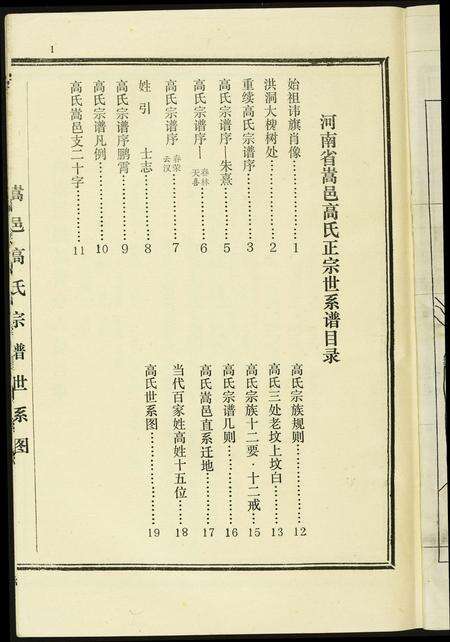 1
河南省嵩邑高氏正宗世系谱目录
始祖讳旗肖像……………1
洪洞大槐树处……………2
重续高氏宗谱序…………3
高氏宗谱序—朱熹………5
高氏宗谱序—春林 天喜……6
高氏宗谱序 春荣 云汉………7
姓引 士志………8
高氏宗谱序鹏霄…………9
高氏宗谱凡例……………10
高氏嵩邑支二十字………11
高氏宗族规则……………12
高氏三处老坟上坟白……13
高氏宗族十二要·十二戒…15
高氏宗谱几则……………16
高氏嵩邑直系迁地………17
当代百家姓高姓十五位…18
高氏世系图………………19
嵩邑高氏宗谱世系图